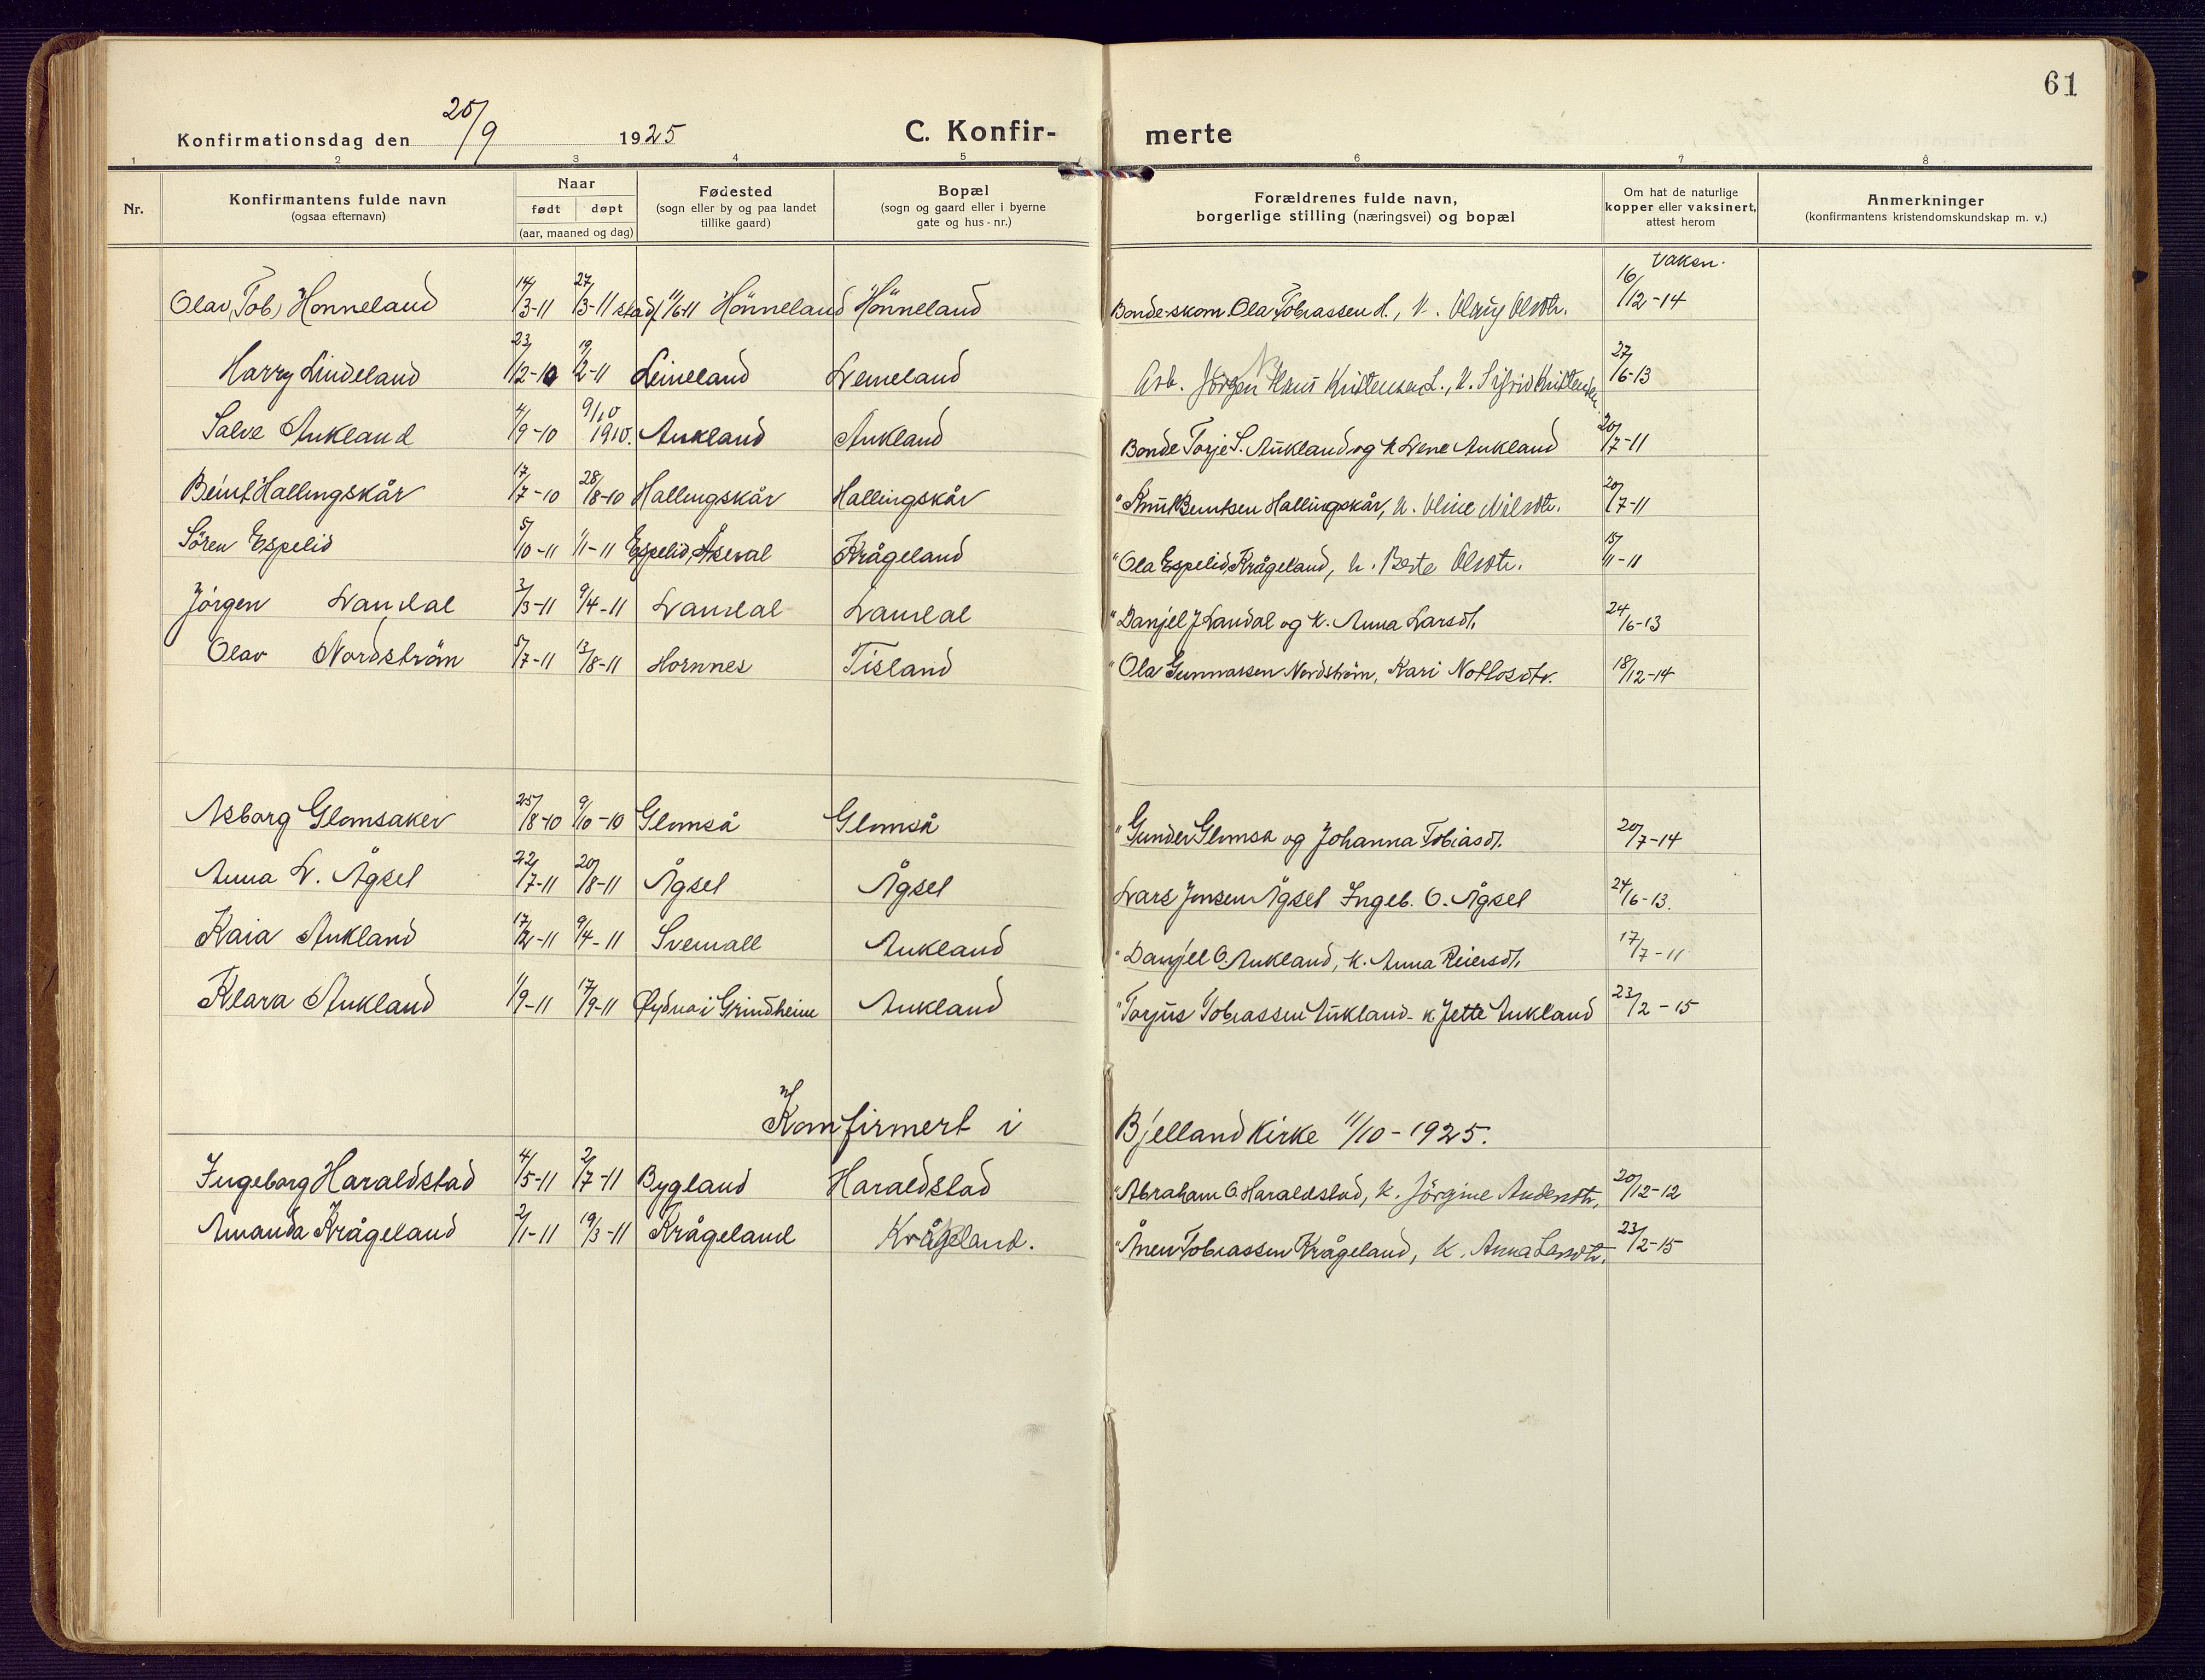 61
Konfirmationsdag den 20/9 1925 C. Konfir- merte
1 2 3 4 5 6 7 8
Nr. Konfirmantens fulde navn (ogsaa efternavn) Naar født døpt (aar, maaned og dag) Fødested (sogn eller by og paa landet tillike gaard) Bopæl (sogn og gaard eller i byerne gate og hus-nr.) Forældrenes fulde navn, borgerlige stilling (næringsvei) og bopæl Om hat de naturlige kopper eller vaksinert, attest herom Anmerkninger (konfirmantens kristendomskundskap m. v.)
vaksn.
Olav (Tob) Honneland 14/3-11 27/3-11 stadf 11/6-11 Hönneland Hönneland Bonde-skom. Ola Tobiassen H., k. Olaug Olsdtr. 16/12-14
Harry Lindeland 23/12-10 19/2-11 Leineland Leineland Arb. Jörgen Hans Kristensen L., k. Sigrid 27/6-13
Salve Aukland 4/9-10 9/10 1910. Aukland Aukland Bonde Torje S. Aukland og k Lene Aukland 20/7-11
Beint Hallingskår 17/7-10 28/8-10 Hallingskår Hallingskår " Knut Beintsen Hallingskår, k. Oline Nilsdtr. 20/7-11
Sören Espelid 5/10-11 1/11-11 Espelid, Åseral Krågeland " Ola Espelid, Krågeland, k. Berte Olsdtr. 15/11-11
Jörgen Landal 3/3-11 9/4-11 Landal Landal " Danjel J Landal og k. Anna Larsdt. 24/6-13
Olav Nordström 5/7-11 13/8-11 Hornnes Tisland " Ola Gunnarsen Nordström, Kari Notlosdtr. 18/12-14
Asborg Glomsaker 25/8-10 9/10-10 Glomså Glomså " Gunder Glomsa og Johanna Tobiasdt. 20/7-14
Anna L. Ågsel 22/7-11 20/8-11 Ågsel Ågsel Lars Jensen Ågsel Ingeb. O. Ågsel 24/6-13.
Kaia Aukland 17/2-11 9/4-11 Sveinall Aukland " Danjel O. Aukland, k. Anna Reiersdt. 17/7-11
Klara Aukland 1/9-11 17/9-11 Øydna i Grindheim Aukland " Torjus Tobiassen Aukland - k. Jette Aukland 23/2-15
Konfirmert i Bjelland Kirke 11/10-1925.
Ingeborg Haraldstad 4/5-11 2/7-11 Bygland Haraldstad " Abraham O. Haraldstad, k. Jörgine Andersdtr. 20/12-12
Amanda Krågeland 2/1-11 19/3-11 Krågeland Krågeland. " Ånen Tobiassen Krågeland, k. Anna Larsdtr. 23/2-15